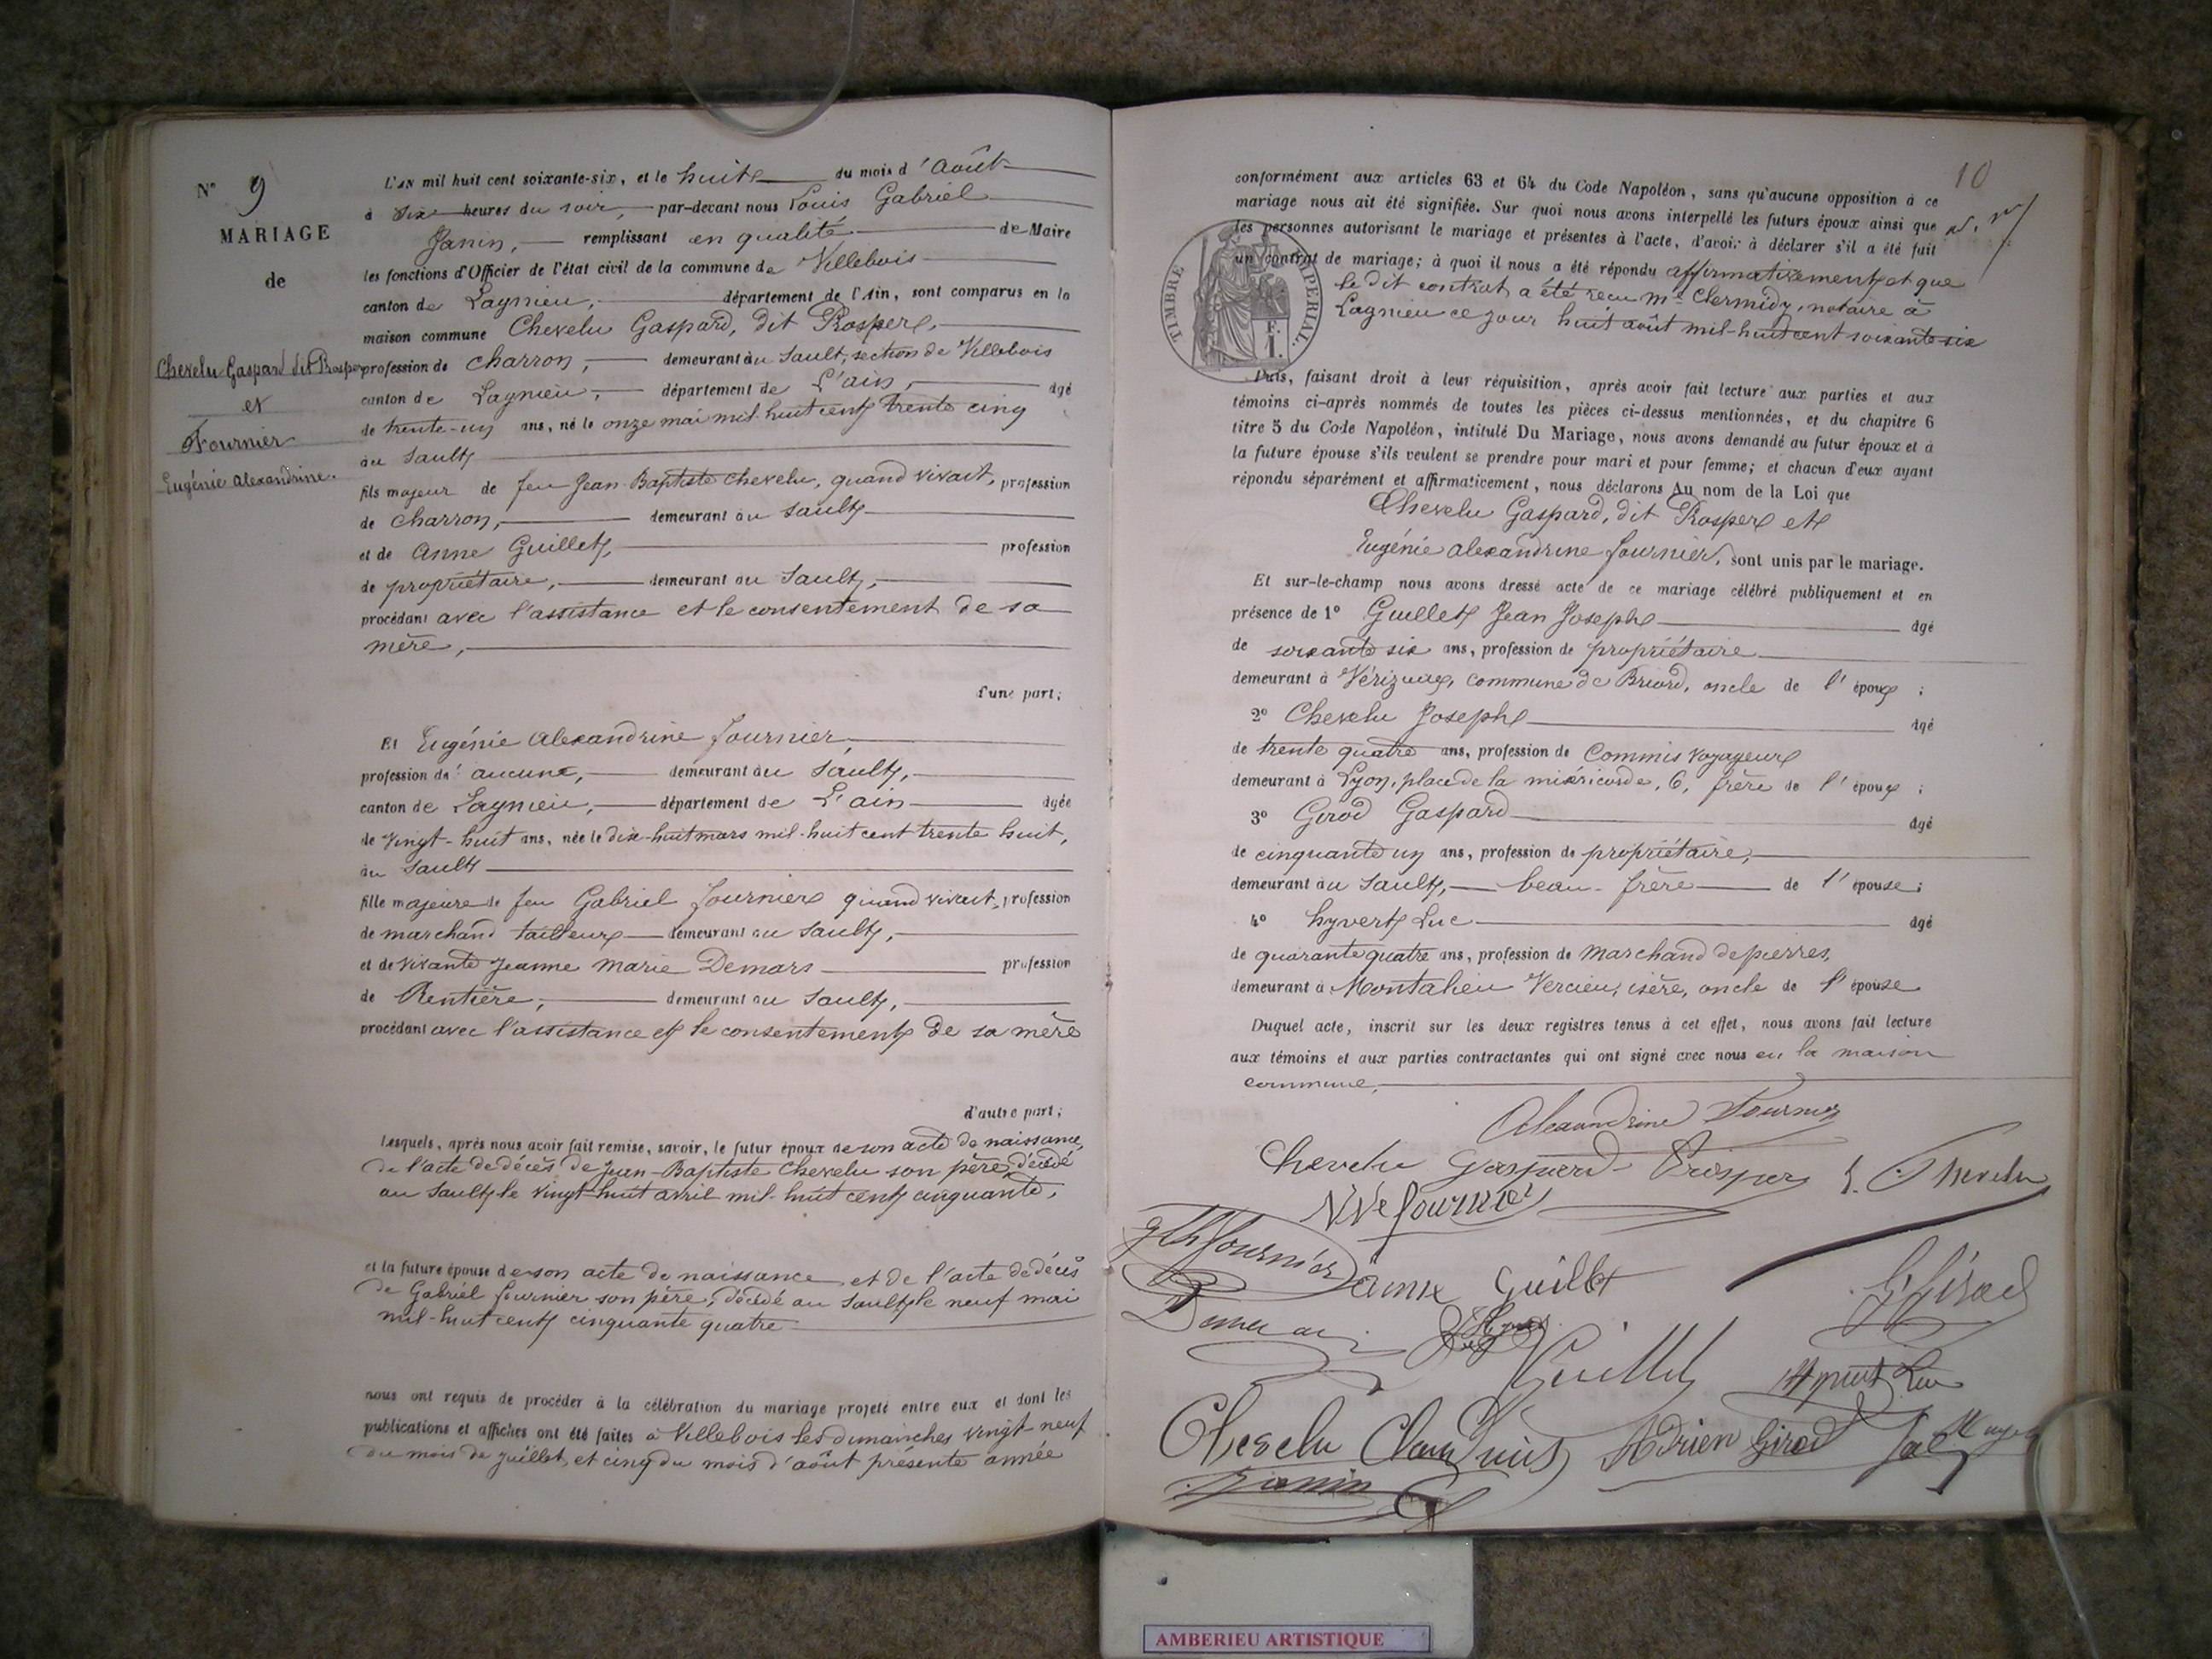 N° 9
MARIAGE
de
Chevelu Gaspard dit Prosper
et
Fournier
Eugénie Alexandrine.
L'AN mil huit cent soixante-six, et le huit du mois d'Août
à six heures du soir, par-devant nous Louis Gabriel
Janin, remplissant en qualité de Maire
les fonctions d'Officier de l'état civil de la commune de Villebois
canton de Lagnieu, département de l'Ain, sont comparus en la
maison commune Chevelu Gaspard, dit Prosper,
profession de charron, demeurant au Sault, section de Villebois
canton de Lagnieu, département de L'ain, âgé
de trente-un ans, né le onze mai mil huit cent trente cinq
au Sault
fils majeur de feu Jean-Baptiste Chevelu, quand vivait, profession
de charron, demeurant au Sault
et de Anne Guillet, profession
de propriétaire, demeurant au Sault,
procédant avec l'assistance et le consentement de sa
mère,
d'une part;
Et Eugénie Alexandrine Fournier,
profession d'aucune, demeurant au Sault,
canton de Lagnieu, département de L'ain âgée
de vingt-huit ans, née le dix-huit mars mil-huit cent trente huit,
au Sault
fille majeure de feu Gabriel Fournier quand vivait, profession
de marchand tailleur demeurant au Sault,
et de vivante Jeanne Marie Demars profession
de Rentière, demeurant au Sault,
procédant avec l'assistance et le consentement de sa mère
d'autre part;
Lesquels, après nous avoir fait remise, savoir, le futur époux de son acte de naissance,
de l'acte de décès de Jean-Baptiste Chevelu son père, décédé
au Sault le vingt-huit avril mil-huit cent cinquante,
et la future épouse de son acte de naissance et de l'acte de décès
de Gabriel Fournier son père, décédé au Sault le neuf mai
mil-huit cent cinquante quatre
nous ont requis de procéder à la célébration du mariage projeté entre eux et dont les
publications et affiches ont été faites à Villebois les dimanches vingt-neuf
du mois de Juillet, et cinq du mois d'août présente année
10
conformément aux articles 63 et 64 du Code Napoléon, sans qu'aucune opposition à ce
mariage nous ait été signifiée. Sur quoi nous avons interpellé les futurs époux ainsi que
les personnes autorisant le mariage et présentes à l'acte, d'avoir à déclarer s'il a été fait
un contrat de mariage; à quoi il nous a été répondu affirmativement et que
le dit contrat a été reçu Me Chermidy, notaire à
Lagnieu ce jour huit août mil-huit cent soixante six
TIMBRE IMPERIAL.
F.
I.
Puis, faisant droit à leur réquisition, après avoir fait lecture aux parties et aux
témoins ci-après nommés de toutes les pièces ci-dessus mentionnées, et du chapitre 6
titre 5 du Code Napoléon, intitulé Du Mariage, nous avons demandé au futur époux et à
la future épouse s'ils veulent se prendre pour mari et pour femme; et chacun d'eux ayant
répondu séparément et affirmativement, nous déclarons Au nom de la Loi que
Chevelu Gaspard, dit Prosper et
Eugénie Alexandrine Fournier, sont unis par le mariage.
Et sur-le-champ nous avons dressé acte de ce mariage célébré publiquement et en
présence de 1° Guillet Jean Joseph âgé
de soixante six ans, profession de propriétaire
demeurant à Vérizieu, commune de Briord, oncle de l'époux;
2° Chevelu Joseph âgé
de trente quatre ans, profession de Commis voyageur
demeurant à Lyon, place de la miséricorde, 6, frère de l'époux;
3° Girod Gaspard âgé
de cinquante un ans, profession de propriétaire,
demeurant au Sault, beau-frère de l'épouse;
4° hyvert Luc âgé
de quarante quatre ans, profession de Marchand de pierres,
demeurant à Montalieu Vercieu, isère, oncle de l'épouse
Duquel acte, inscrit sur les deux registres tenus à cet effet, nous avons fait lecture
aux témoins et aux parties contractantes qui ont signé avec nous en la maison
commune,
Alexandrine Fournier
Chevelu Gaspard Prosper J. Chevelu
Vve fournier
fournier Anne Guillet G Girod
Guillet Hyvert Luc
Chevelu Claudius Adrien Girod
Janin
AMBERIEU ARTISTIQUE